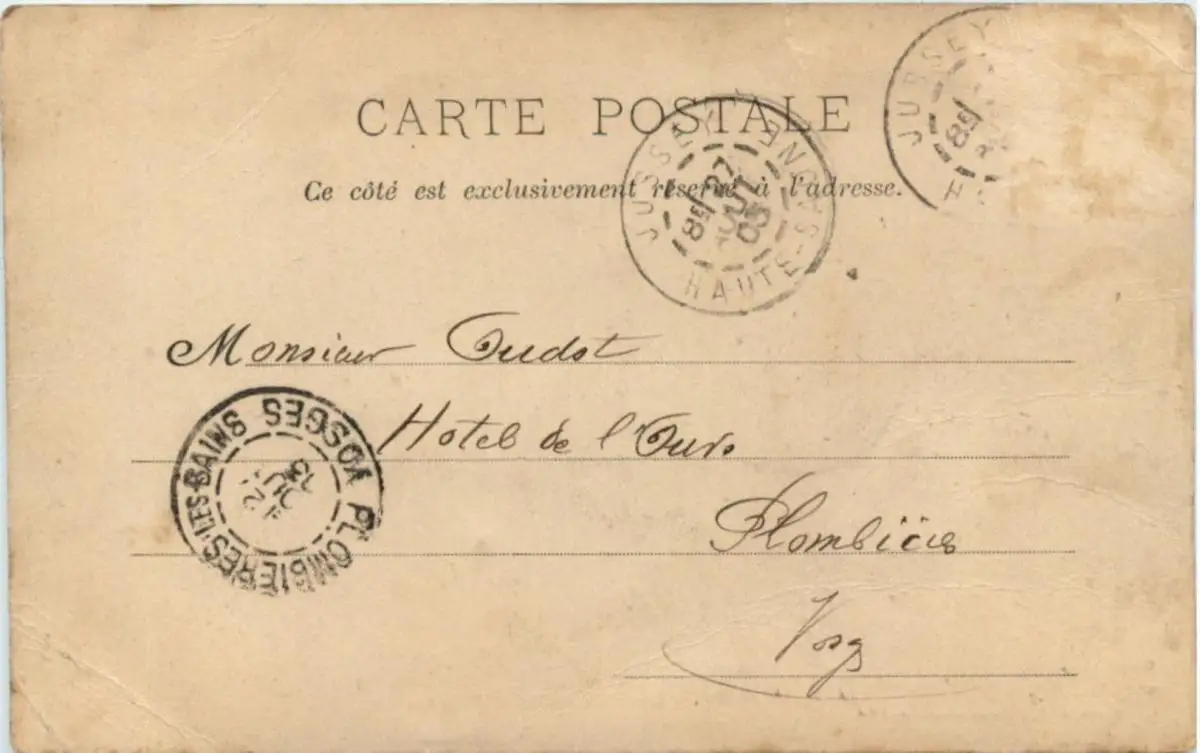 CARTE POSTALE
Ce côté est exclusivement réservé à l'adresse.
JUSSEY
HAUTE-SAONE
8E 27
03
JUSSEY
8E
H
Monsieur Oudot
Hotel de l'Ours
Plombières
Vosg
PLOMBIERES-LES-BAINS VOSGES